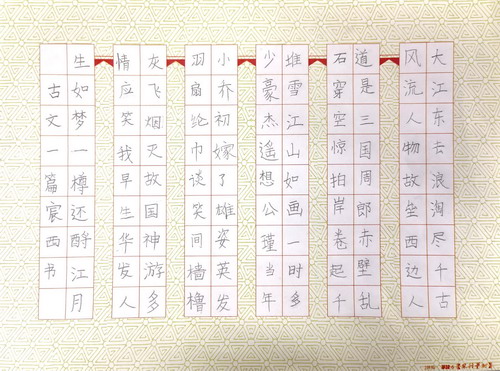 大江东去浪淘尽千古
风流人物故垒西边人
道是三国周郎赤壁乱
石穿空惊拍岸卷起千
堆雪江山如画一时多
少豪杰遥想公瑾当年
小乔初嫁了雄姿英发
羽扇纶巾谈笑间樯橹
灰飞烟灭故国神游多
情应笑我早生华发人
生如梦一樽还酹江月
古文一篇宸西书